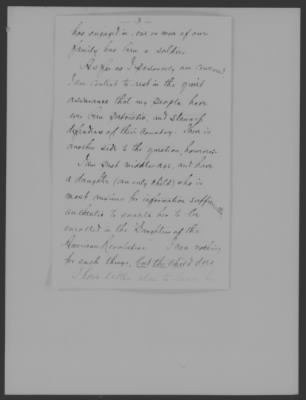 - 3 -
has engaged in, one or more of our
family has been a soldier.
As far as I personally am concerned
I am content to rest in the quiet
assurance that my people have
ever been patriotic, and staunch
defenders of their Country. There is
another side to the question, however.
I am past middle age, and have
a daughter (an only child) who is
most anxious for information sufficiently
authentic to enable her to be
enrolled in the Daughters of the
American Revolution. I care nothing
for such things, but the child does
I have little else to leave